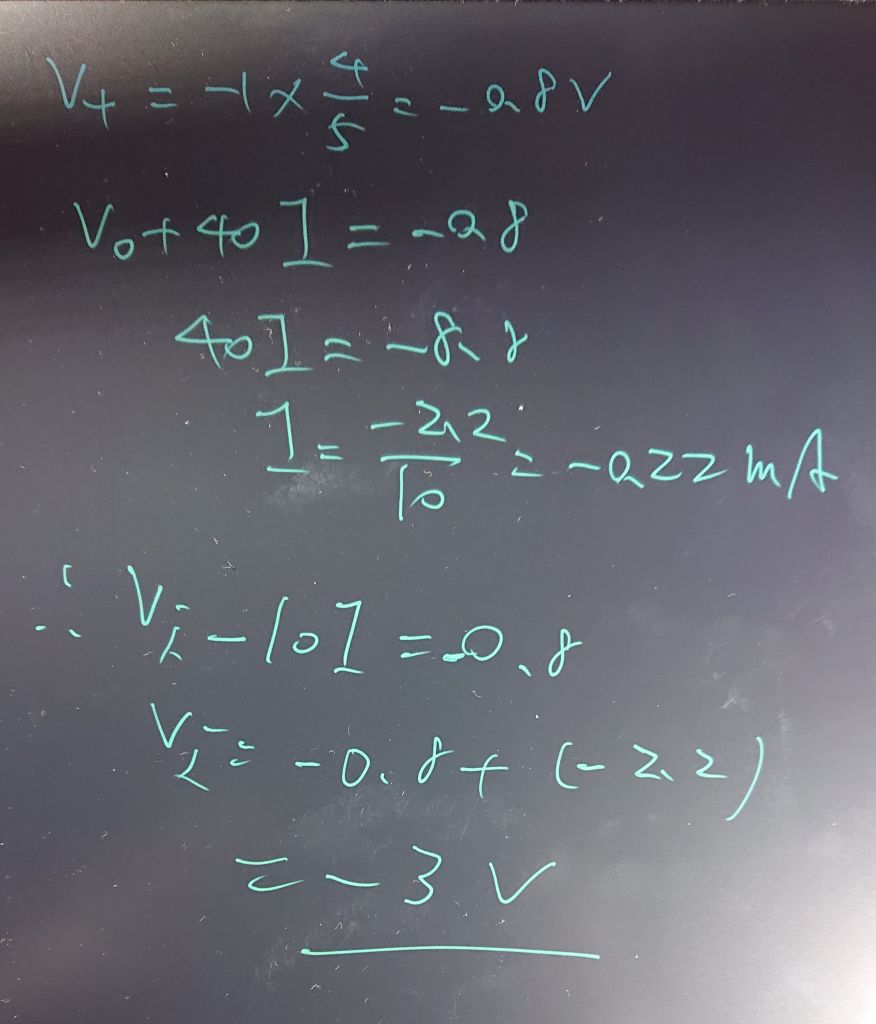 V+ = -1 × 4/5 = -0.8V
Vo + 40I = -0.8
40I = -8.8
I = -2.2/10 = -0.22mA
∴ Vi - 10I = -0.8
Vi = -0.8 + (-2.2)
= -3V